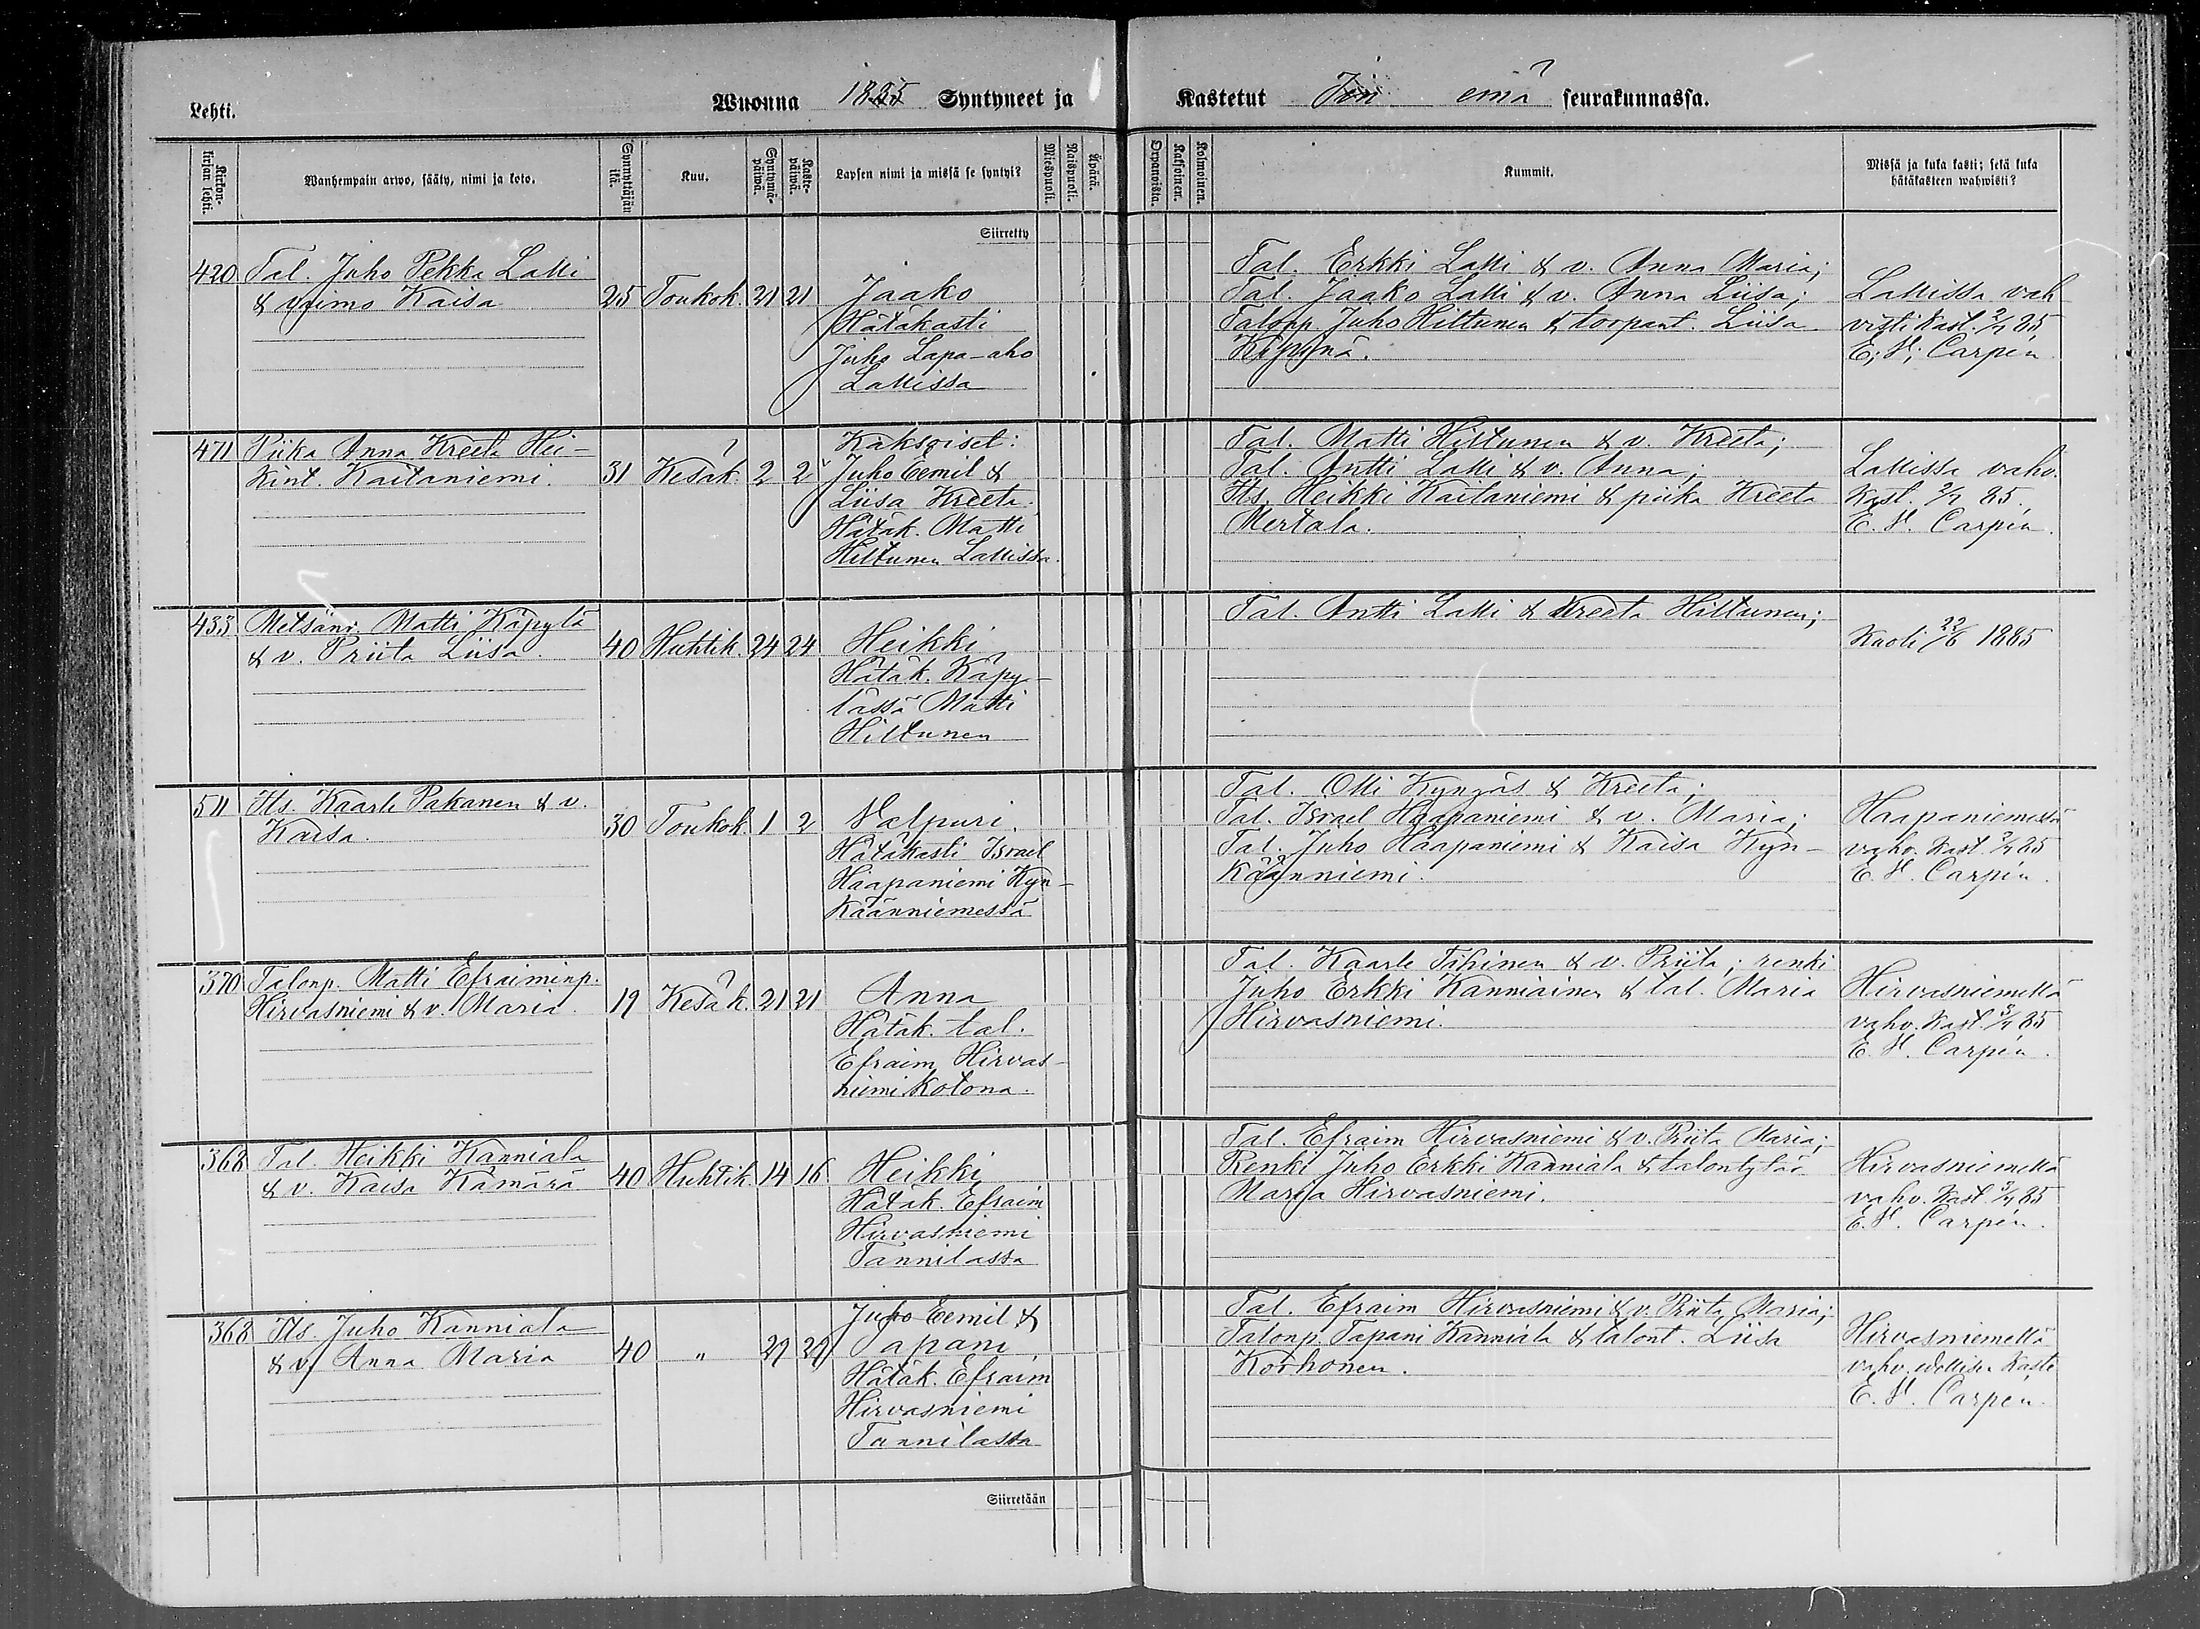 Lehti.
Wuonna 1885 Syntyneet ja
Kastetut Iin emä seurakunnassa.
Kirkonkirjan lehti.
Wanhempain arwo, sääty, nimi ja koto.
Synnyttäjän ikä.
Kuu.
Syntymäpäiwä.
Kastepäiwä.
Lapsen nimi ja missä se syntyi?
Miespuoli.
Naispuoli.
Äpärä.
Orpanoista.
Kaksoinen.
Kolmoinen.
Kummit.
Missä ja kuka kasti; sekä kuka
hätäkasteen wahwisti?
Siirretty
420 Tal. Juho Pekka Lalli
& vaimo Kaisa 25 Toukok. 21 21 Jaako
Hätäkasti
Juho Lapa-aho
Lallissa
Tal. Erkki Lalli & v. Anna Maria;
Tal. Jaako Lalli & v. Anna Liisa;
Talonp. Juho Hiltunen & torpant. Liisa
Käpynä.
Lallissa vah
visti kast. 2/7 85
E; V; Carpén
471 Piika Anna Kreeta Hei-
kint. Kaitaniemi. 31 Kesäk. 2 2
Kaksoiset:
Juho Eemil &
Liisa Kreeta.
Hätäk. Matti
Hiltunen Lallissa.
Tal. Matti Hiltunen & v. Kreeta;
Tal. Antti Lalli & v. Anna;
Its. Heikki Kaitaniemi & piika Kreeta
Mertala.
Lallissa vahv.
kast. 2/7 85.
E. V. Carpén.
433 Metsänv. Matti Käpylä
& v. Priita Liisa. 40 Huhtik. 24 24 Heikki
Hätäk. Käpy-
lässä Matti
Hiltunen
Tal. Antti Lalli & Kreeta Hiltunen;
Kuoli 22/6 1885
511 Its. Kaarle Pakanen & v.
Kaisa. 30 Toukok. 1 2 Valpuri.
Hätäkasti Israel
Haapaniemi Kyn-
käänniemessä
Tal. Olli Kyngäs & Kreeta;
Tal. Israel Haapaniemi & v. Maria;
Tal. Juho Haapaniemi & Kaisa Kyn-
käänniemi.
Haapaniemessä
vahv. kast. 2/7 85
E. V. Carpén.
370 Talonp. Matti Efraiminp.
Hirvasniemi & v. Maria. 19 Kesäk. 21 21 Anna
Hätäk. tal.
Efraim Hirvas-
niemi kotona.
Tal. Kaarle Tihinen & v. Priita; renki
Juho Erkki Kanniainen & tal. Maria
Hirvasniemi.
Hirvasniemellä
vahv. kast. 3/7 85
E. V. Carpén.
368 Tal. Heikki Kanniala
& v. Kaisa Kämärä 40 Huhtik. 14 16 Heikki
Hätäk. Efraim
Hirvasniemi
Tannilassa
Tal. Efraim Hirvasniemi & v. Priita Maria;
Renki Juho Erkki Kanniala & talontytär
Marja Hirvasniemi.
Hirvasniemellä
vahv. kast. 3/7 85
E. V. Carpén.
368 Its. Juho Kanniala
& v. Anna Maria 40 " 29 29
Juho Eemil &
Tapani
Hätäk. Efraim
Hirvasniemi
Tannilassa
Tal. Efraim Hirvasniemi & v. Priita Maria;
Talonp. Tapani Kanniala & talont. Liisa
Korhonen.
Hirvasniemellä
vahv. edellisen kaste
E. V. Carpén.
Siirretään